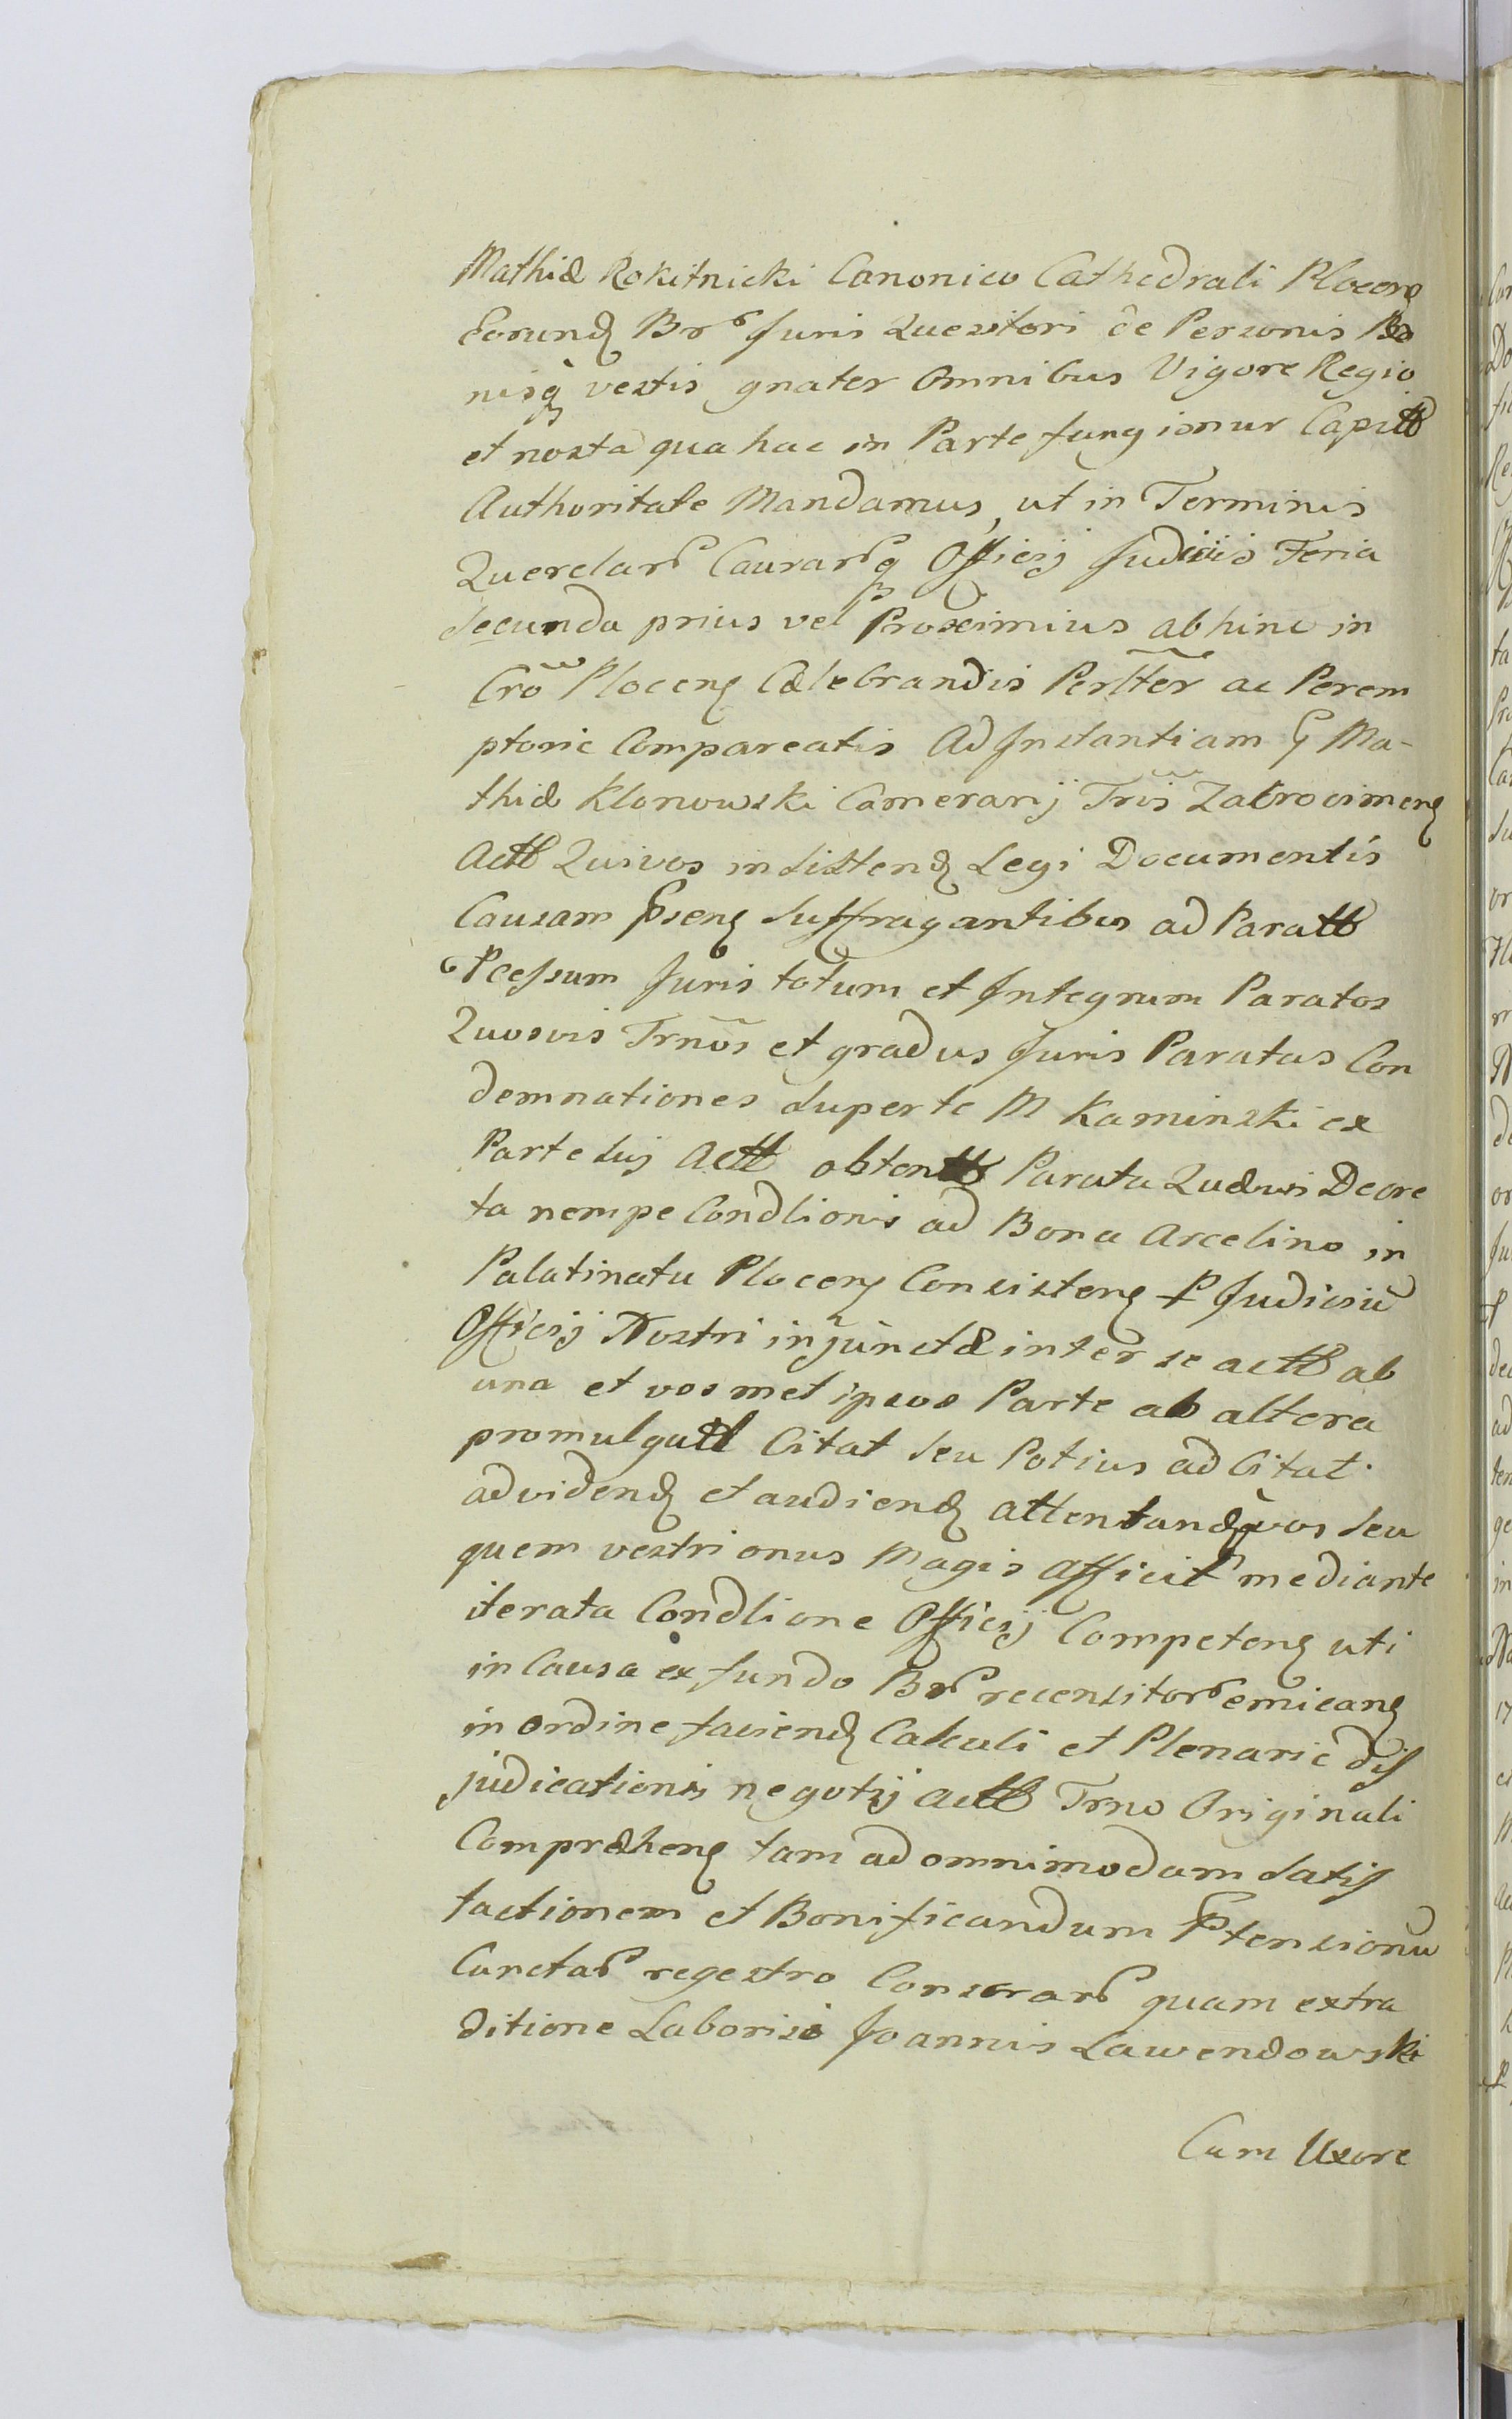 Mathiæ Rokitnicki Canonico Cathedrali Plocen
Eorund Br Juris Quesitori de Personis Bo
nisq vestis gnater Omnibus Vigore Regio
et nosta qua hac in Parte fungimur Capitt
Authoritate Mandamus, ut in Terminis
Querelar Causarq Officij Judiciis Feria
Secunda prius vel Proximius abhinc in
Cro Plocen Cælebrandis Perltter ac Perem
ptorie Compareatis Ad Instantiam G Ma-
thiæ Klonowski Camerarij Tris Zakrocimen
Actt Qui vos insistend Legi Documentis
Causam Psen Suffragantibus ad Paratt
Pcessum Juris totum et Integrum Paratos
Quosvis Trnos et gradus Juris Paratas Con
demnationes Super te M Kaminski ex
Parte Sui Actt obtentt Parata Quævis Decre
ta nempe Condlionis ad Bona Arcelino in
Palatinatu Plocen Consisten P Judiciu
Officij Nostri injunctæ inter se actt ab
una et vosmet ipsos Parte ab altera
promulgatt Citat Seu Potius ad Citat
ad vidend et audiend attentand vos Seu
quem vestri onus Magis afficit mediante
iterata Condlione Officij Competen uti
in Causa ex fundo Br recensitor emican
in ordine faciend Calculi et Plenarie dis
judicationis negotij actt Trno Originali
Compræhen tam ad omnimodam Satis
factionem et Bonificandum Ptensionu
Cunctar regestro Conserar quam extra
ditione Laboriosi Joannis Lawendowski
Cum Uxore